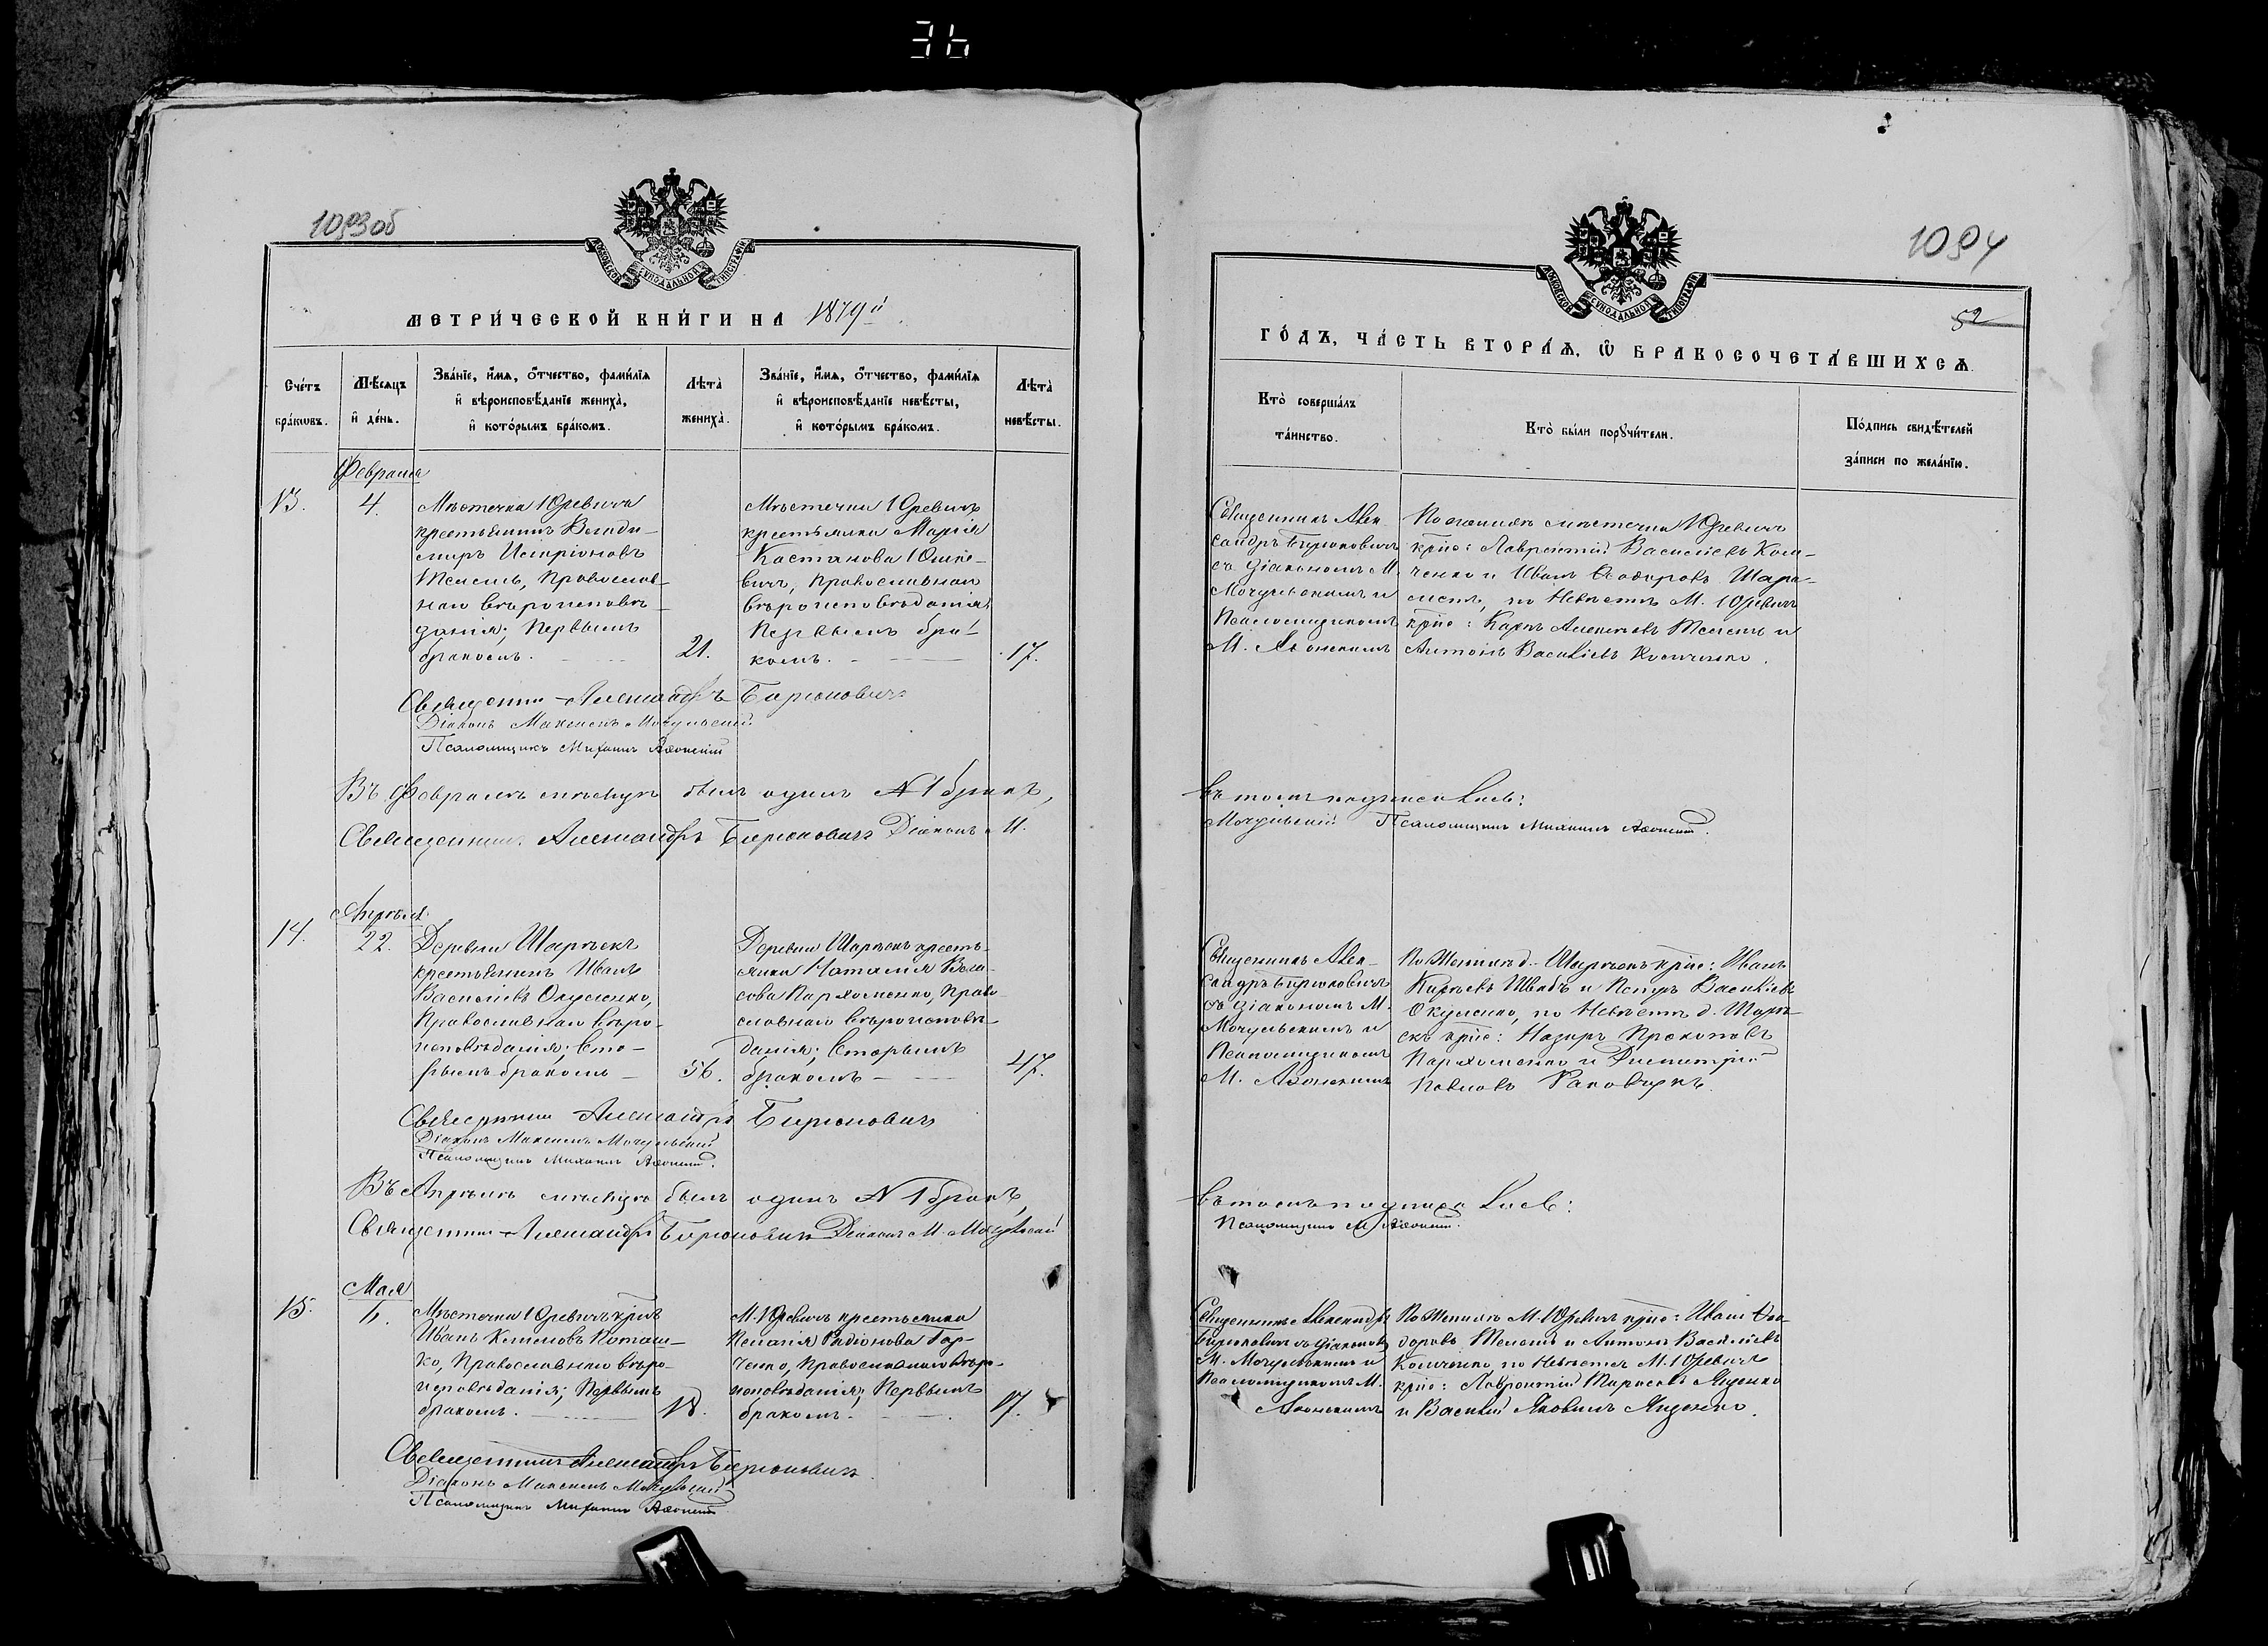 36
1093об
МОСКОВСКОЙ СѴНОДАЛЬНОЙ ТИПОГРАФІИ
МЕТРИ́ЧЕСКОЙ КНИ́ГИ НА 1879й
Сче́тъ бра́ковъ.
Мѣ́сяцъ и де́нь.
Зва́нїе, и́мя, о́тчество, фами́лїя и вѣроисповѣ́данїе жениха̀, и кото́рымъ бра́комъ.
Лѣ́та жениха̀.
Зва́нїе, и́мя, о́тчество, фами́лїя и вѣроисповѣ́данїе невѣ́сты, и кото́рымъ бра́комъ.
Лѣ́та невѣ́сты.
Февраль
13.
4.
Мѣстечка Юревичъ
крестьянинъ Влади-
миръ
православ-
наго вѣроисповѣ-
данія; первымъ
бракомъ.
21.
Мѣстечка Юревичъ
крестьянка Марія
Юшке-
вичъ, православнаго
вѣроисповѣданія;
первымъ бра-
комъ.
17.
Священникъ Александръ Бирюковичъ
Діаконъ Максимъ Мочульскій
Псаломщикъ Михаилъ Яхонскій
Въ Февралѣ мѣсяцѣ былъ одинъ №1 бракъ,
Священникъ Александръ Бирюковичъ Діаконъ М.
Апрѣль
14.
22.
Деревни Шарѣекъ
крестьянинъ Иванъ
Васильевъ Окуленко,
православнаго вѣро-
исповѣданія; вто-
рымъ бракомъ
56.
Деревни Шарѣекъ кресть-
янка Наталія Вла-
сова Пархоменко, право-
славнаго вѣроисповѣ-
данія; вторымъ
бракомъ
47.
Священникъ Александръ Бирюковичъ
Діаконъ Максимъ Мочульскій
Псаломщикъ Михаилъ Яхонскій.
Въ Апрѣлѣ мѣсяцѣ былъ одинъ №1 бракъ,
Священникъ Александръ Бирюковичъ Діаконъ М. Мочульскій
Мая
15.
6.
Мѣстечка Юревичъ
Иванъ Климовъ Поташ-
ко, православнаго вѣро-
исповѣданія; первымъ
бракомъ.
18.
М. Юревичъ крестьянка
Пелагія Радіонова Гар-
ченко, православнаго вѣро-
исповѣданія; первымъ
бракомъ.
17.
Священникъ Александръ Бирюковичъ
Діаконъ Максимъ Мочульскій
Псаломщикъ Михаилъ Яхонскій
1094
52
МОСКОВСКОЙ СѴНОДАЛЬНОЙ ТИПОГРАФІИ
ГО́ДЪ, ЧА́СТЬ ВТОРА́Я, Ѡ БРАКОСОЧЕТА́ВШИХСЯ.
Кто̀ соверша́лъ та́инство.
Кто̀ бы́ли пору́чители.
По́дпись свидѣ́телей за́писи по жела́нїю.
Священникъ Алек-
сандръ Бирюковичъ
съ діакономъ М.
Мочульскимъ и
Псаломщикомъ
М. Яхонскимъ
По женихѣ мѣстечка Юревичъ
крѣс: Лаврентій Васильевъ Кол-
ченко и Иванъ Ѳодоровъ
по невѣстѣ М. Юревичъ
Антонъ Васильевъ Колченко.
въ томъ подписались:
Мочульскій Псаломщикъ Михаилъ Яхонскій.
Священникъ Алек-
сандръ Бирюковичъ
съ діакономъ М.
Мочульскимъ и
Псаломщикомъ
М. Яхонскимъ
По женихѣ д. Шарѣекъ Иванъ
и Петръ Васильевъ
Окуленко, по невѣстѣ д. Шарѣ-
екъ Назаръ Прокоповъ
Пархоменко и Димитрій
Павловъ
въ томъ подписались:
Псаломщикъ М. Яхонскій.
Священникъ Александръ
Бирюковичъ съ діакономъ
М. Мочульскимъ и
Псаломщикомъ М.
Яхонскимъ
По женихѣ М. Юревичъ Иванъ Ѳео-
доровъ и Антонъ Васильевъ
Колченко, по невѣстѣ М. Юревичъ
Лаврентій Тарасовъ Яценко
и Василій Яковлевъ Яценко.